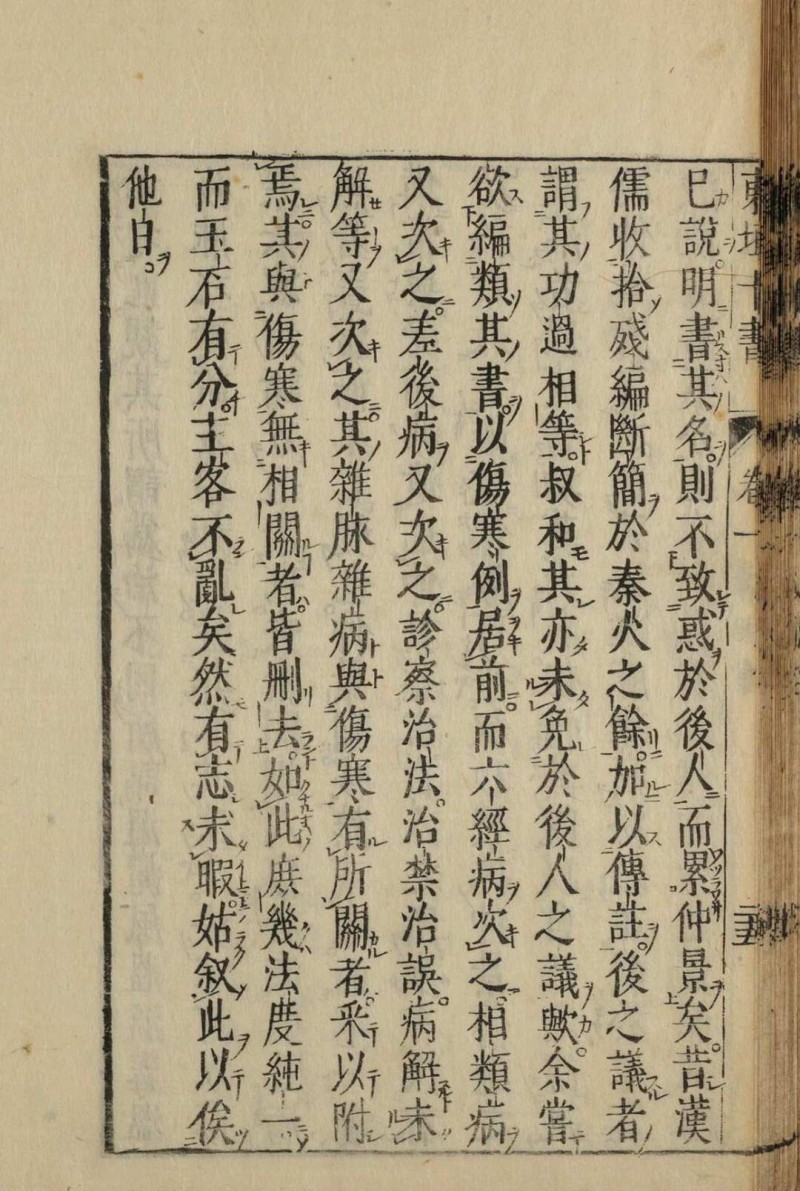 東垣十書 卷一
已說明書其名則不致惑於後人而累仲景矣昔漢
儒收拾殘編斷簡於秦火之餘加以傳註後之議者
謂其功過相等叔和其亦未免於後人之議歟余嘗
欲編類其書以傷寒例居前而六經病次之相類病
又次之差後病又次之診察治法治禁治誤病解未
解等又次之其雜脉雜病與傷寒有所關者采以附
焉其與傷寒無相關者皆刪去如此庶幾法度純一
而玉石有分主客不亂矣然有志未暇姑叙此以俟
他日